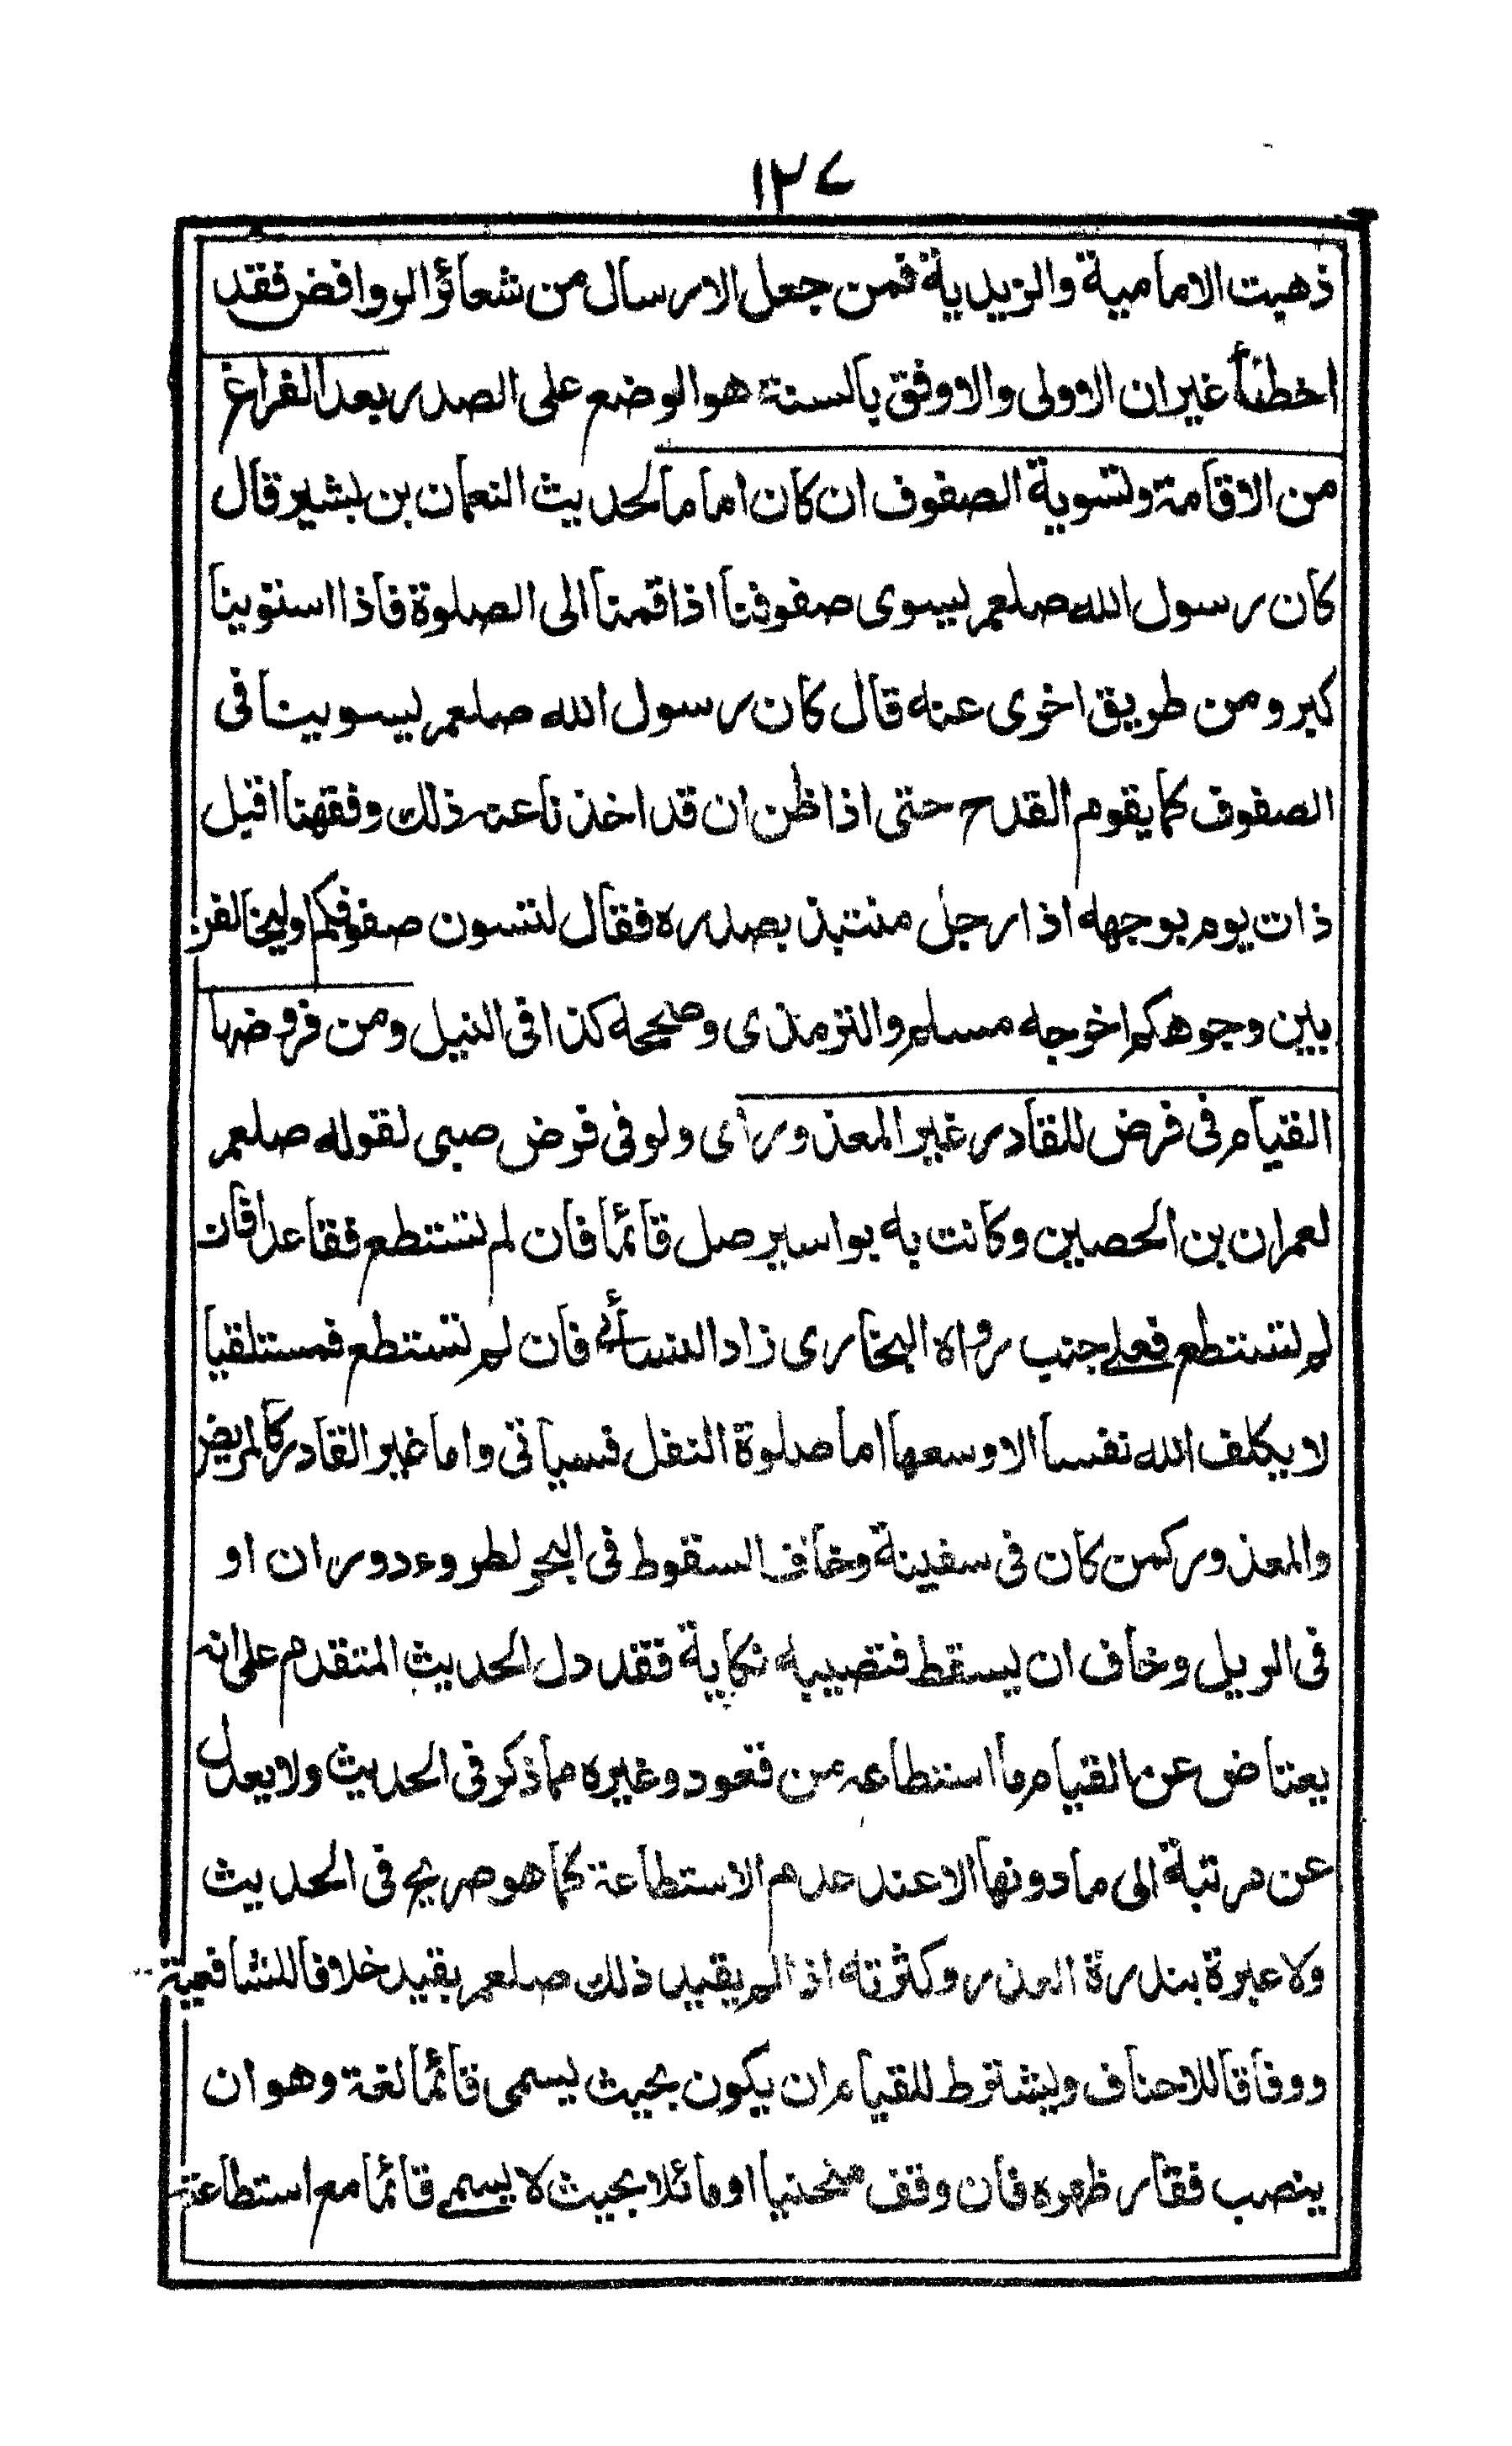 ١٢٧
ذهبت الامامية والزيدية فمن جعل الارسال من شعائر الروافض فقد
اخطأ غير ان الاولى والاوفق بالسنة هو الوضع على الصدر بعد الفراغ
من الاقامة وتسوية الصفوف ان كان اماما لحديث النعمان بن بشير قال
كان رسول الله صلعم يسوى صفوفنا اذا قمنا الى الصلوة فاذا استوينا
كبر ومن طريق اخرى عنه قال كان رسول الله صلعم يسوينا فى
الصفوف كما يقوم القدح حتى اذا ظن ان قد اخذنا عنه ذلك وفقهنا اقبل
ذات يوم بوجهه اذا رجل منتبذ بصدره فقال لتسون صفوفكم او ليخالفن
بين وجوهكم اخرجه مسلم والترمذى وصححه كذا فى النيل ومن فروضها
القيام فى فرض للقادر غير المعذور اى ولو فى فرض صبى لقوله صلعم
لعمران بن الحصين وكانت به بواسير صل قائما فان لم تستطع فقاعدا فان
لم تستطع فعلى جنب رواه البخارى زاد النسائى فان لم تستطع فمستلقيا
لا يكلف الله نفسا الا وسعها اما صلوة النفل فسياتى واما غير القادر كالمريض
والمعذور كمن كان فى سفينة وخاف السقوط فى البحر لطروء دوران او
فى الريل وخاف ان يسقط فتصيبه نكاية فقد دل الحديث المتقدم على انه
يعتاض عن القيام ما استطاعه من قعود وغيره مما ذكر فى الحديث ولا يعدل
عن مرتبة الى ما دونها الا عند عدم الاستطاعة كما هو صريح فى الحديث
ولا عبرة بندرة العذر وكثرته اذ لم يقيد ذلك صلعم بقيد خلافا للشافعية
ووفاقا للاحناف ويشترط للقيام ان يكون بحيث يسمى قائما لغة وهو ان
ينصب فقار ظهره فان وقف منحنيا او مائلا بحيث لا يسمى قائما مع استطاعته